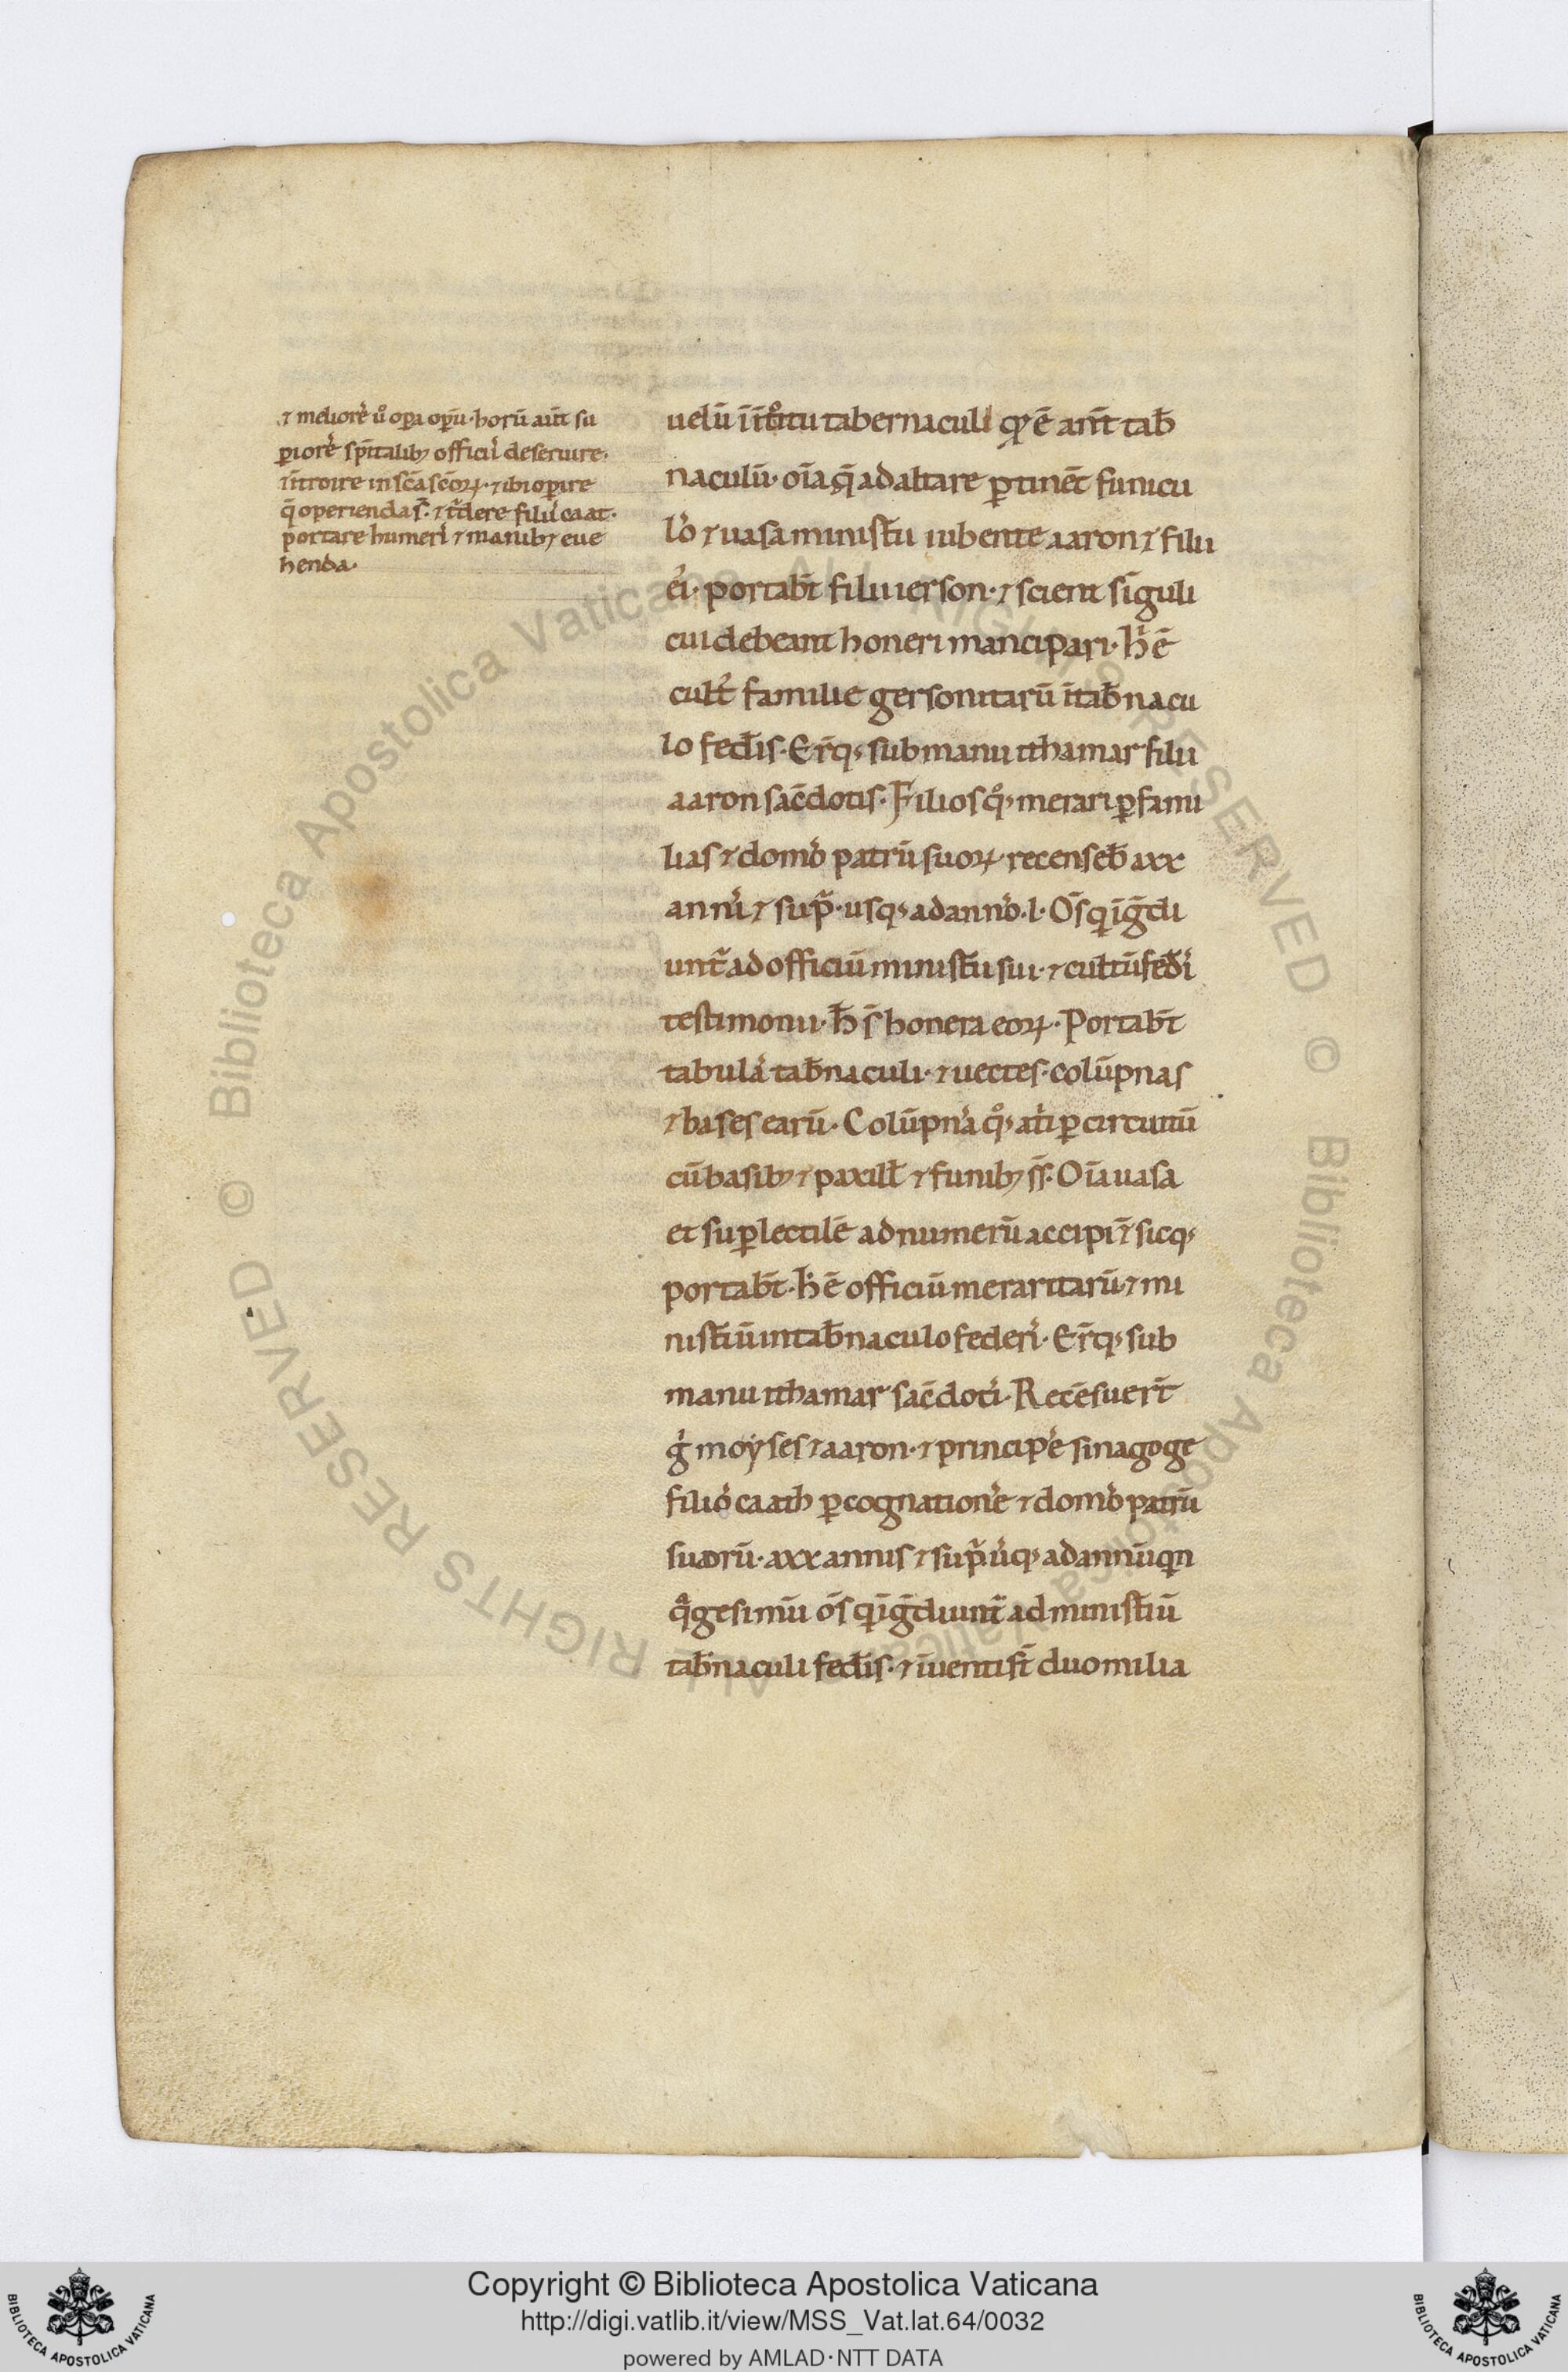 ⁊ meliorẽ u̾o opa opũ· horũ aut̃ su
ꝑiorẽ sp̃italib; officiis deseruire·
ĩtroire in scã scõꝝ· ⁊ ibi opire
q̃ operienda s̃· ⁊ t̃dere filiis caat·
portare humeris ⁊ manib; eue
henda·
uelũ ĩ ĩtͦitu tabernaculi qđ ẽ ant̃ tab̃
naculũ· oĩa q̃ ad altare ꝑtinẽt funicu
los ⁊ uasa minist̃ii iubente aaron ⁊ filii
eiꝰ· portab̃t filii ierson· ⁊ scient sĩguli
cui debeant honeri mancipari· h̾ ẽ
cultꝰ familie gersonitarũ ĩ tab̃nacu
lo fed̃is· Er̃tq; sub manu ithamar filii
aaron sac̃dotis· Filios qͦq; merari ꝑ fami
lias ⁊ domos patrũ suoꝝ recenseb̃ a xx
annis ⁊ sup̃· usq; ad annos· l· Om̃s q ĩg̃di
unt̃ ad officiũ minist̃ii sui· ⁊ cultũ fed̃is
testimonii· H̃ s̃ honera eoꝝ· Portab̃t
tabulas tab̃naculi· ⁊ uectes· colũpnas
⁊ bases earũ· Colũpnas qͦq; at̃i ꝑ circuitũ
cũ basib; ⁊ paxill̃ ⁊ funib; s̃s̃· Oĩa uasa
et suꝑlectilẽ ad numerũ accipiẽt sicq;
portab̃t· h̾ ẽ officiũ meraritarũ ⁊ mi
nist̃iũ in tab̃naculo federis· Er̃tq; sub
manu ithamar sac̃dotis· Recẽsuer̃t
g̾ moẏses ⁊ aaron· ⁊ principes sinagoge
filios caath ꝑ cognationes ⁊ domos patrũ
suorũ· a xx annis ⁊ sup̃ usq; ad annũ qn
q̃gesimũ om̃s q ĩg̃diunt̃ ad minist̃iũ
tab̃naculi fed̃is· ⁊ ĩuenti st̃ duo milia
Copyright © Biblioteca Apostolica Vaticana
http://digi.vatlib.it/view/MSS_Vat.lat.64/0032
powered by AMLAD·NTT DATA
BIBLIOTECA APOSTOLICA VATICANA
BIBLIOTECA APOSTOLICA VATICANA
© Biblioteca Apostolica Vaticana ALL RIGHTS RESERVED
© Biblioteca Apostolica Vaticana ALL RIGHTS RESERVED